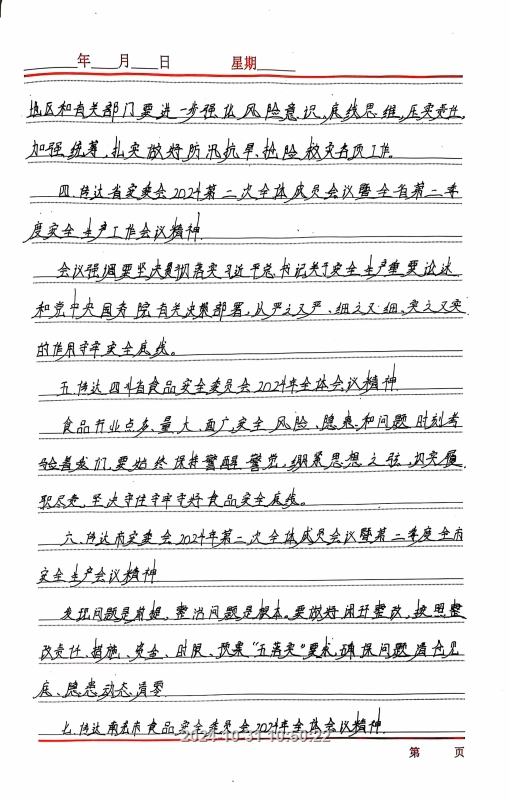 年 月 日 星期
地区和有关部门要进一步强化风险意识、底线思维,压实责任,
加强统筹,扎实做好防汛抗旱、抢险救灾各项工作.
四.传达省安委会2024第二次全体成员会议暨全省第二季
度安全生产工作会议精神.
会议强调要坚决贯彻落实习近平总书记关于安全生产重要论述
和党中央国务院有关决策部署,从严之又严、细之又细、实之又实
的作用守牢安全底线。
五.传达四川省食品安全委员会2024年全体会议精神
食品行业点多、量大、面广,安全风险、隐患和问题时刻考
验着我们,要始终保持警醒警觉,绷紧思想之弦,切实履
职尽责,坚决守住守牢守好食品安全底线。
六.传达市安委会2024年第二次全体成员会议暨第二季度全市
安全生产会议精神
发现问题是前提,整治问题是根本。要做好闭环整改,按照整
改责任、措施、资金、时限、预案“五落实”要求,确保问题清仓见
底、隐患动态清零.
七.传达南充市食品安全委员会2024年全体会议精神.
2024-10-31 10:50:22
第 页